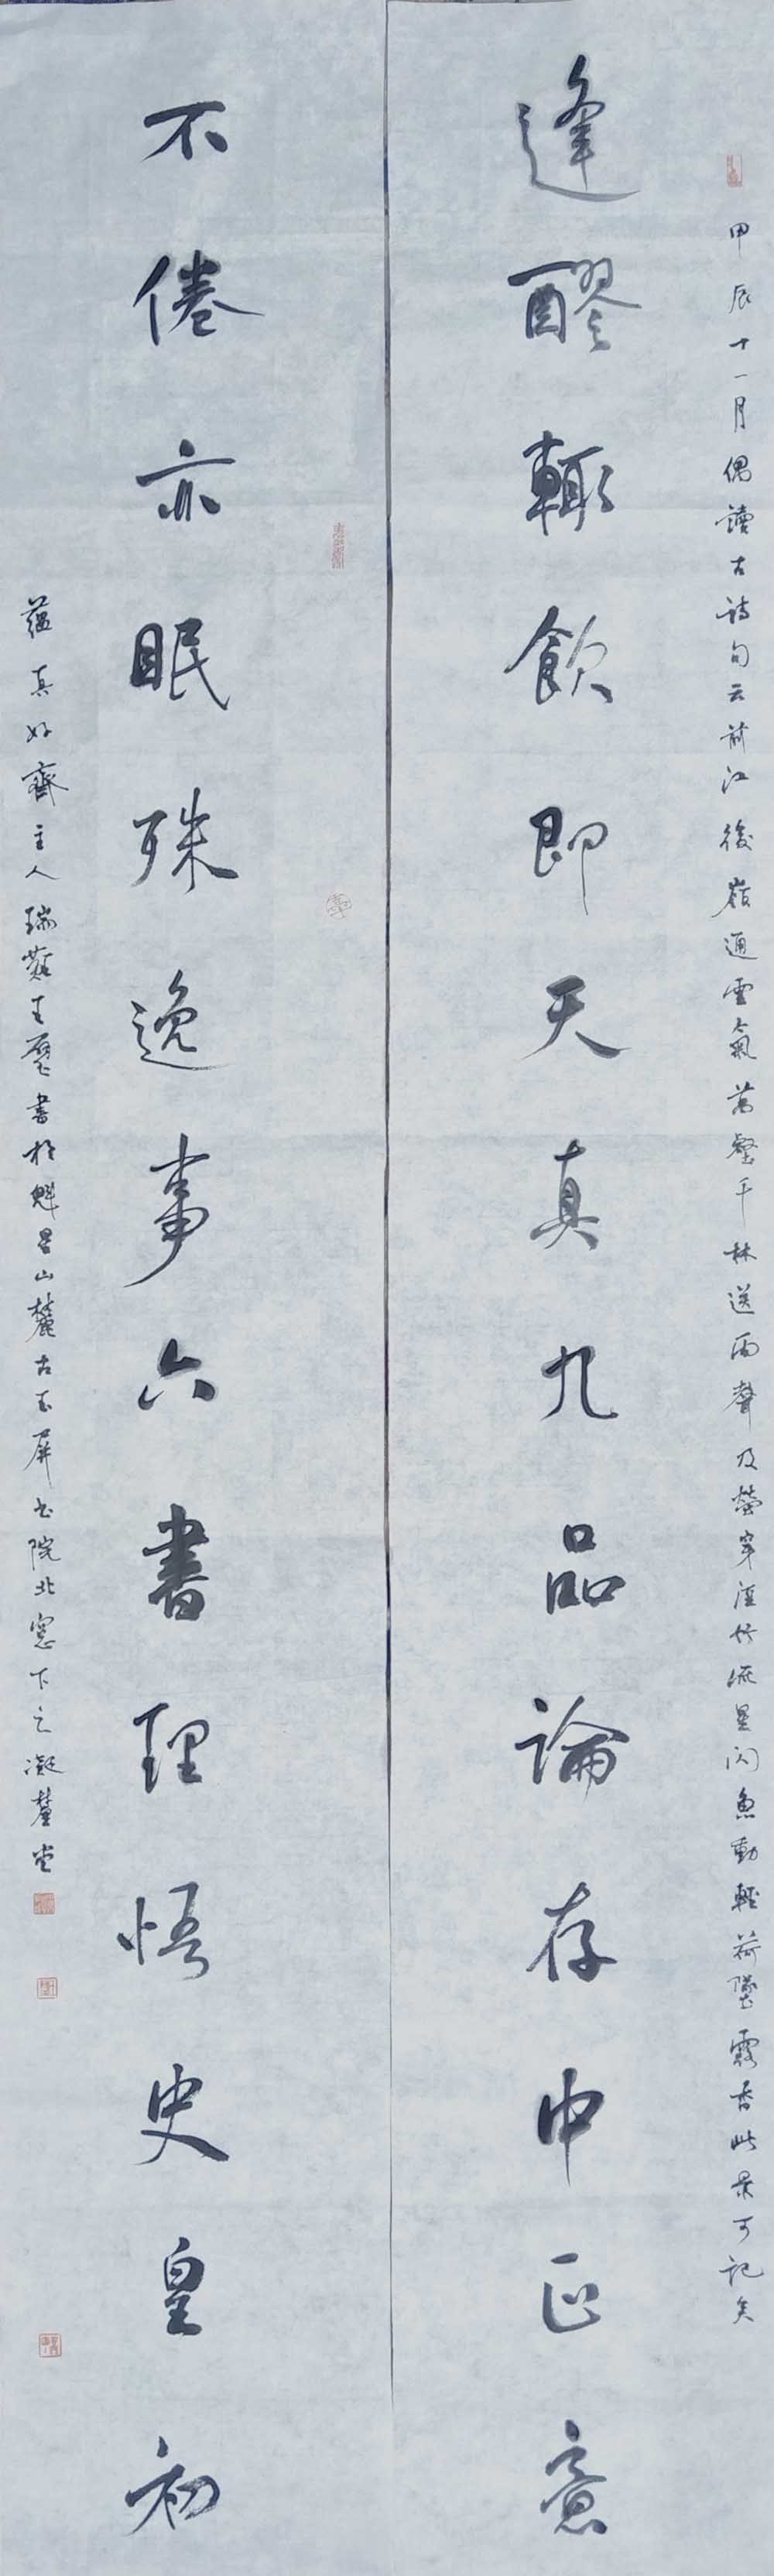 甲辰十一月偶讀古詩句云前江後嶺通雲氣萬壑千林送雨聲及螢穿溼竹流星閃魚動輕荷墜露香此景可記矣
逢醪輒飲即天真九品論存中正意
不倦亦眠殊逸事六書理悟史皇初
蘊真好齋主人瑞王書於魁星山麓古玉屏書院北窗下之凝釐堂